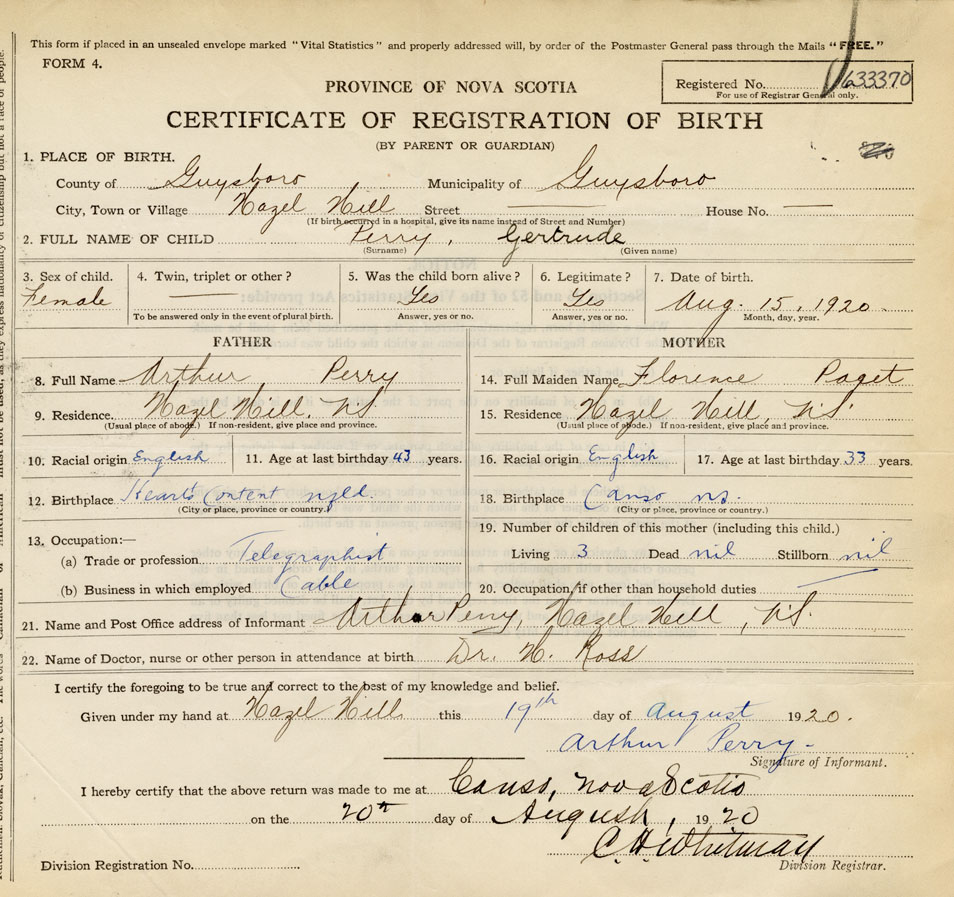 This form if placed in an unsealed envelope marked "Vital Statistics" and properly addressed will, by order of the Postmaster General pass through the Mails "FREE."
FORM 4.
Registered No. 633370
For use of Registrar General only.
PROVINCE OF NOVA SCOTIA
CERTIFICATE OF REGISTRATION OF BIRTH
(BY PARENT OR GUARDIAN)
1. PLACE OF BIRTH.
County of Guysboro Municipality of Guysboro
City, Town or Village Hazel Hill Street — House No. —
(If birth occurred in a hospital, give its name instead of Street and Number)
2. FULL NAME OF CHILD Perry, Gertrude
(Surname) (Given name)
3. Sex of child. 4. Twin, triplet or other? 5. Was the child born alive? 6. Legitimate? 7. Date of birth.
Female — Yes Yes Aug. 15, 1920
To be answered only in the event of plural birth. Answer, yes or no. Answer, yes or no. Month, day, year.
FATHER MOTHER
8. Full Name Arthur Perry 14. Full Maiden Name Florence Paget
9. Residence. Hazel Hill, N.S. 15. Residence Hazel Hill, N.S.
(Usual place of abode.) If non-resident, give place and province. (Usual place of abode.) If non-resident, give place and province.
10. Racial origin English 11. Age at last birthday 43 years. 16. Racial origin English 17. Age at last birthday 33 years.
12. Birthplace Hearts Content nfld. 18. Birthplace Canso ns.
(City or place, province or country.) (City or place, province or country.)
13. Occupation:— 19. Number of children of this mother (including this child.)
(a) Trade or profession Telegraphist Living 3 Dead nil Stillborn nil
(b) Business in which employed Cable 20. Occupation, if other than household duties —
21. Name and Post Office address of Informant Arthur Perry, Hazel Hill, N.S.
22. Name of Doctor, nurse or other person in attendance at birth Dr. H. Ross
I certify the foregoing to be true and correct to the best of my knowledge and belief.
Given under my hand at Hazel Hill this 19th day of August 1920.
Arthur Perry
Signature of Informant.
I hereby certify that the above return was made to me at Canso, Nova Scotia
on the 20th day of August, 1920
C. H. Whitman
Division Registration No. Division Registrar.